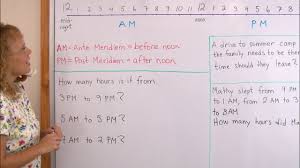 12 1 2 3 4 5 6 7 8 9 10 11 12 1 2 3 4 5 6 7 8 9 10 11 12
mid-
night
AM
PM
AM = Ante Meridiem = before noon
PM = Post Meridiem = after noon
How many hours is it from
3 PM to 9 PM?
5 AM to 5 PM?
AM to 2 PM?
A drive to summer camp
the family needs to be the
time should they leave?
Mathy slept from 9 PM
to 1 AM, from 2 AM to 3
to 8AM
How many hours did M